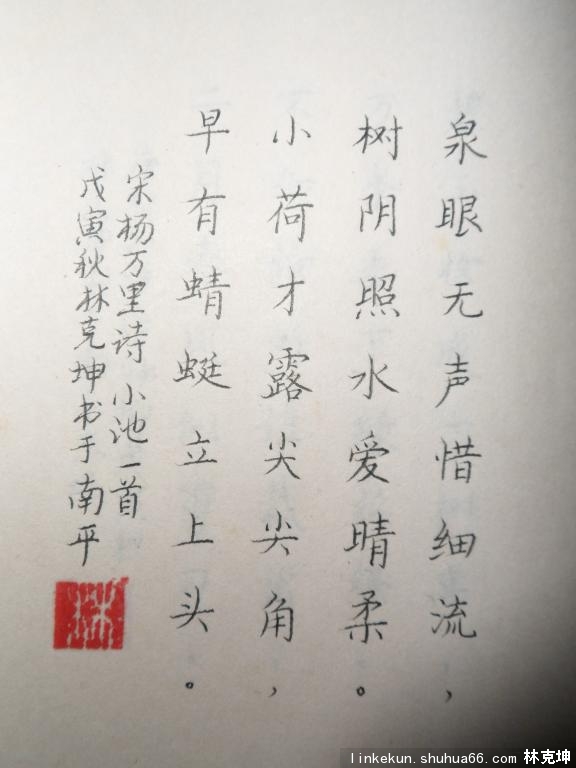 泉眼无声惜细流，
树阴照水爱晴柔。
小荷才露尖尖角，
早有蜻蜓立上头。
宋杨万里诗 小池一首
戊寅秋林克坤书于南平
林
linkekun.shuhua66.com 林克坤